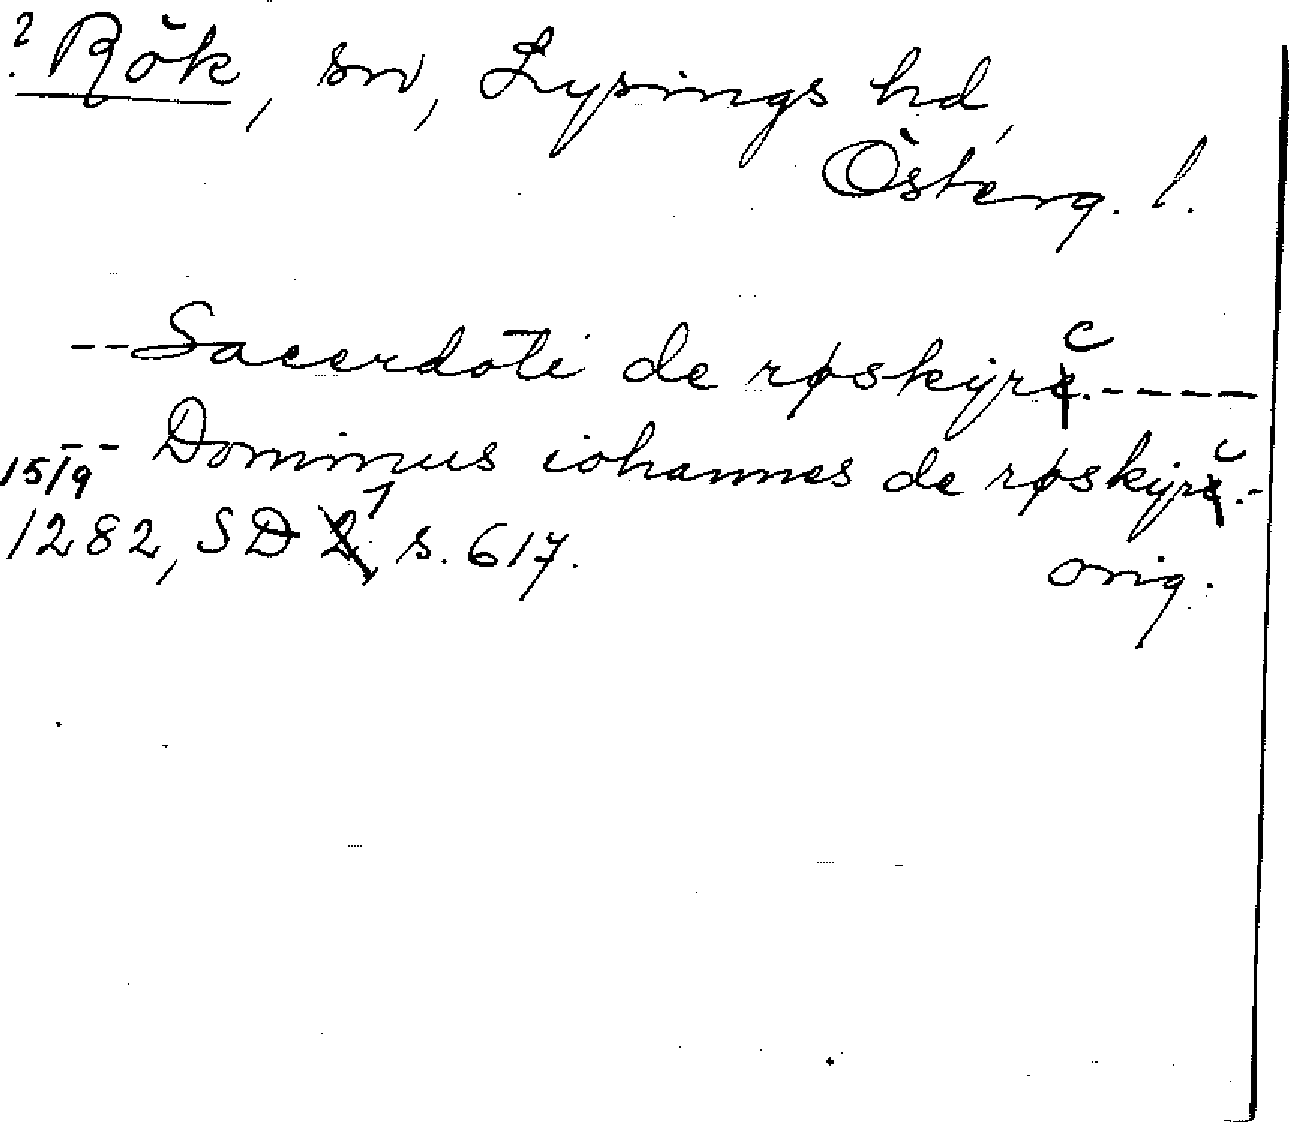 ? Rök, sn, Lysings hd,
Österg. l.
-- Sacerdoti de røskyrc.-----
-- Dominus iohannes de røskyrc.--
15/9
1282, SD 1 s. 617. orig.